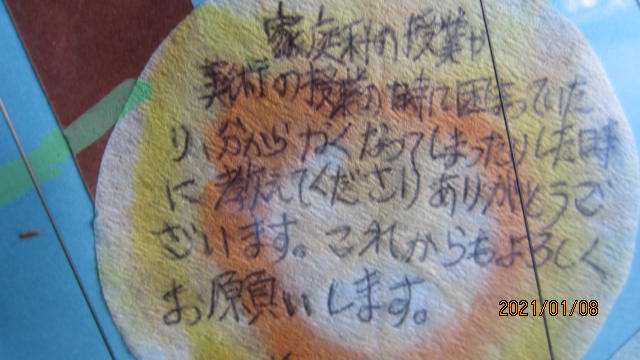 家庭科の授業や
美術の授業の時に困っていた
り、分からなくなってしまったりした時
に教えてくださりありがとうご
ざいます。これからもよろしく
お願いします。
2021/01/08